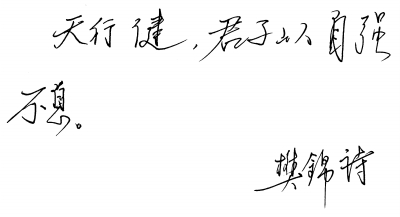 天行健,君子以自强
不息。
樊錦诗